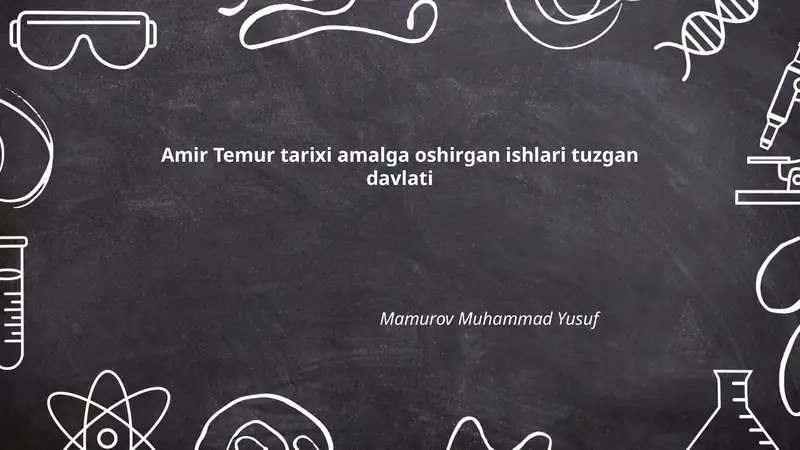 Amir Temur tarixi amalga oshirgan ishlari tuzgan
davlati
Mamurov Muhammad Yusuf